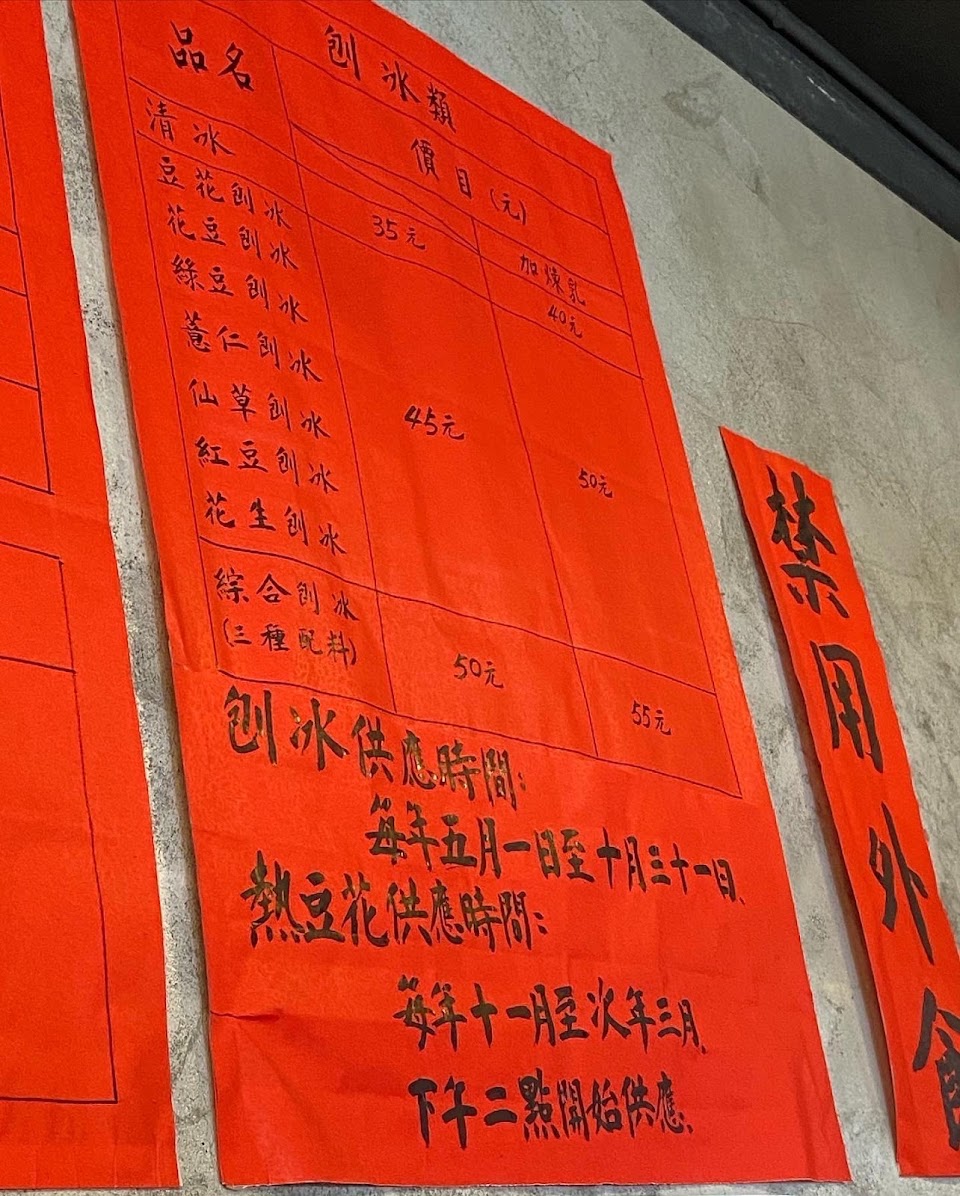 刨冰類
品名
價目(元)
加煉乳
清冰
35元
40元
豆花刨冰
花豆刨冰
綠豆刨冰
薏仁刨冰
仙草刨冰
紅豆刨冰
花生刨冰
45元
50元
綜合刨冰
(三種配料)
50元
55元
刨冰供應時間:
每年五月一日至十月三十一日、
熱豆花供應時間:
每年十一月至次年三月、
下午二點開始供應、
禁用外食